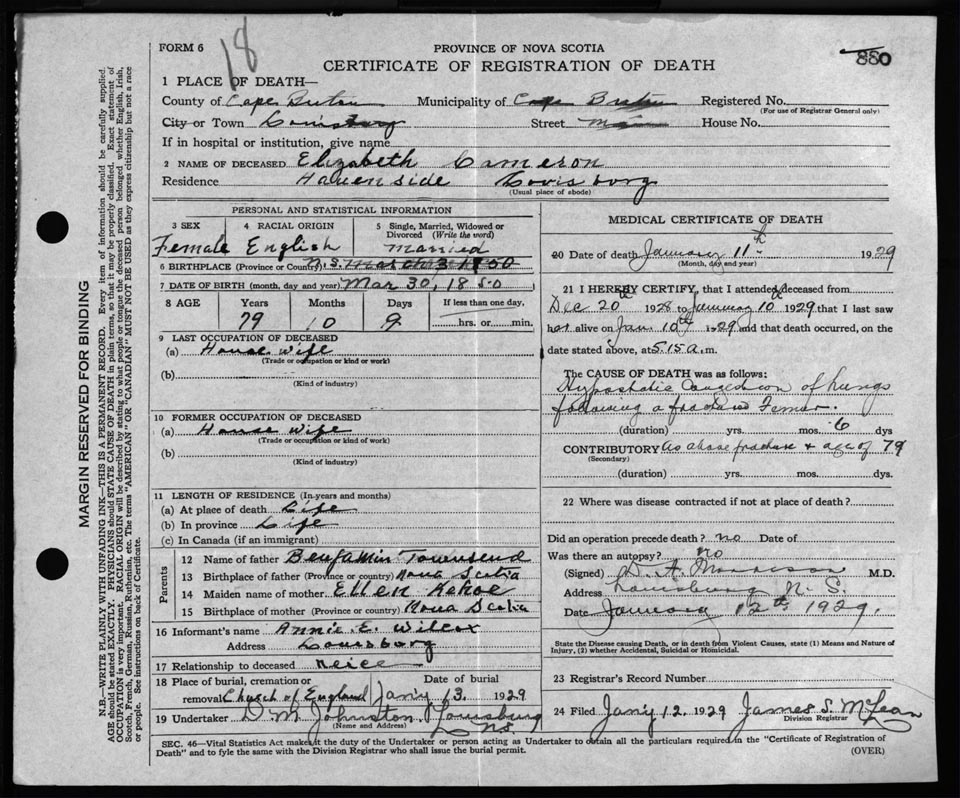 18
880
FORM 6
PROVINCE OF NOVA SCOTIA
CERTIFICATE OF REGISTRATION OF DEATH
1 PLACE OF DEATH—
County of Cape Breton Municipality of Cape Breton Registered No.
(For use of Registrar General only)
City or Town Louisburg Street Main House No.
If in hospital or institution, give name
2 NAME OF DECEASED Elizabeth Cameron
Residence Havenside Lovisborg
(Usual place of abode)
PERSONAL AND STATISTICAL INFORMATION
3 SEX 4 RACIAL ORIGIN 5 Single, Married, Widowed or Divorced (Write the word)
Female English Married
6 BIRTHPLACE (Province or Country) N.S. March 3 1850
7 DATE OF BIRTH (month, day and year) Mar 30, 1850
8 AGE Years Months Days If less than one day,
79 10 9 hrs. or min.
9 LAST OCCUPATION OF DECEASED
(a) House wife
(Trade or occupation or kind or work)
(b)
(Kind of industry)
10 FORMER OCCUPATION OF DECEASED
(a) House wife
(Trade or occupation or kind or work)
(b)
(Kind of industry)
11 LENGTH OF RESIDENCE (In years and months)
(a) At place of death Life
(b) In province Life
(c) In Canada (if an immigrant)
Parents
12 Name of father Benjamin Townsend
13 Birthplace of father (Province or country) Nova Scotia
14 Maiden name of mother Ellen Kehoe
15 Birthplace of mother (Province or country) Nova Scotia
16 Informant's name Annie E. Wilcox
Address Louisborg
17 Relationship to deceased neice
18 Place of burial, cremation or removal Church of England Date of burial Jan'y 13, 1929
19 Undertaker D M Johnston Louisburg N.S.
(Name and Address)
MEDICAL CERTIFICATE OF DEATH
20 Date of death January 11th 1929
(Month, day and year)
21 I HEREBY CERTIFY, that I attended deceased from
Dec 20th 1928 to January 10th 1929 that I last saw
her alive on Jan 10th 1929 and that death occurred, on the
date stated above, at 5.15 a.m.
The CAUSE OF DEATH was as follows:
Hypostatic Congestion of lungs
following a fractured Femur.
(duration) yrs. mos. 6 dys
CONTRIBUTORY as above fracture & age of 79
(Secondary)
(duration) yrs. mos. dys.
22 Where was disease contracted if not at place of death?
Did an operation precede death? no Date of
Was there an autopsy? no
(Signed) D. A. Morrison M.D.
Address Louisburg N. S.
Date January 12th 1929.
State the Disease causing Death, or in death from Violent Causes, state (1) Means and Nature of
Injury, (2) whether Accidental, Suicidal or Homicidal.
23 Registrar's Record Number
24 Filed Jan'y 12, 1929 James S. McLean
Division Registrar
SEC. 46—Vital Statistics Act makes it the duty of the Undertaker or person acting as Undertaker to obtain all the particulars required in the "Certificate of Registration of
Death" and to fyle the same with the Division Registrar who shall issue the burial permit.
(OVER)
MARGIN RESERVED FOR BINDING
N.B.—WRITE PLAINLY WITH UNFADING INK—THIS IS A PERMANENT RECORD. Every item of information should be carefully supplied.
AGE should be stated EXACTLY. PHYSICIANS should STATE CAUSE OF DEATH in plain terms, so that it may be properly classified. Exact statement of
OCCUPATION is very important. RACIAL ORIGIN will be described by stating to what people or tongue the deceased person belonged whether English, Irish,
Scotch, French, German, Russian, Ruthenian, etc. The terms "AMERICAN" or "CANADIAN" MUST NOT BE USED as they express citizenship but not a race
or people. See instructions on back of Certificate.